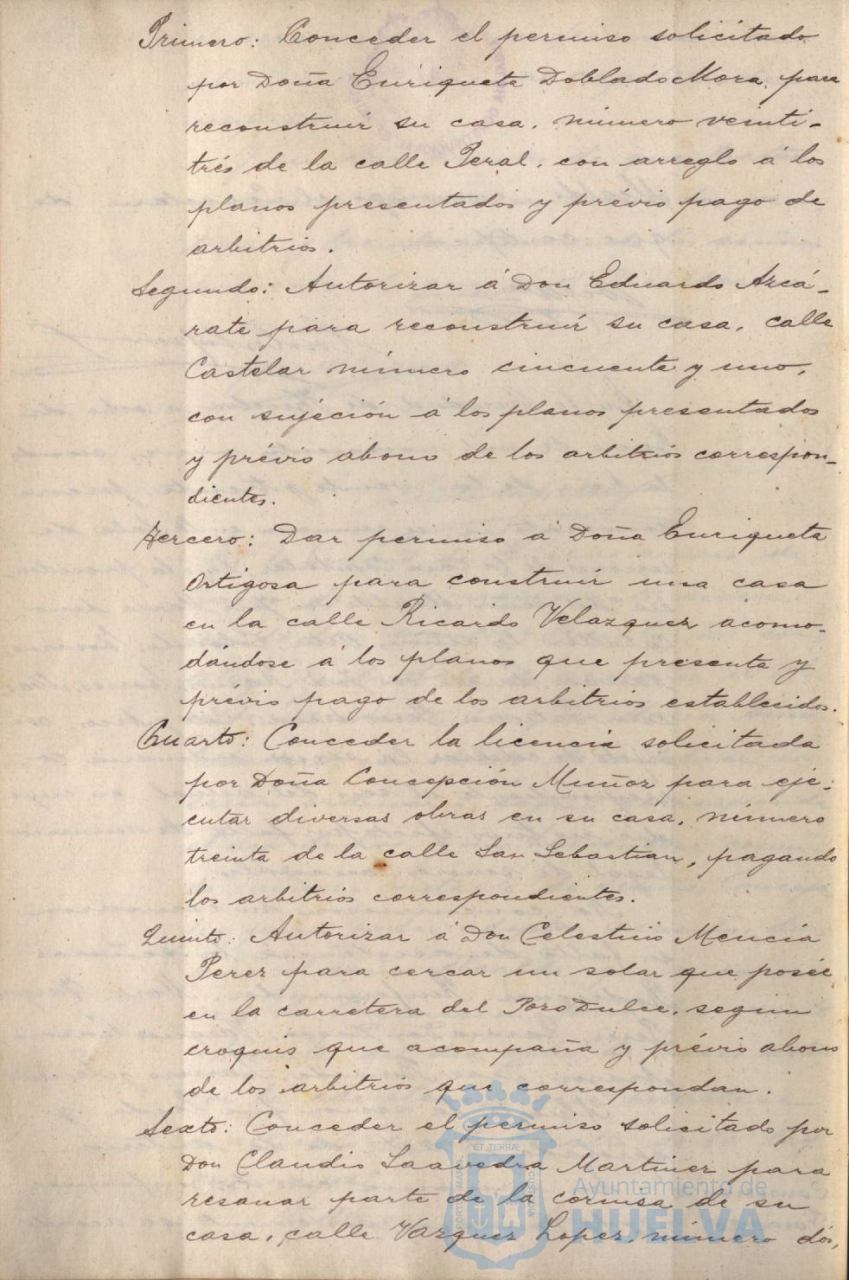 Primero: Conceder el permiso solicitado
por Doña Enriqueta Doblado Mora, para
reconstruir su casa, número veinti-
trés de la calle Peral, con arreglo á los
planos presentados y prévio pago de
arbitrios.
Segundo: Autorizar á Don Eduardo Azcá-
rate para reconstruir su casa, calle
Castelar número cincuenta y uno,
con sujeción á los planos presentados
y prévio abono de los arbitrios correspon-
dientes.
Tercero: Dar permiso á Doña Enriqueta
Ortigosa para construir una casa
en la calle Ricardo Velazquez acomo-
dándose á los planos que presenta y
prévio pago de los arbitrios establecidos.
Cuarto: Conceder la licencia solicitada
por Doña Concepción Muñoz para eje-
cutar diversas obras en su casa, número
treinta de la calle San Sebastian, pagando
los arbitrios correspondientes.
Quinto: Autorizar á Don Celestino Mencía
Perez para cercar un solar que poseé
en la carretera del Pozo Dulce, segun
croquis que acompaña y prévio abono
de los arbitrios que correspondan.
Sexto: Conceder el permiso solicitado por
Don Claudio Saavedra Martinez para
resanar parte de la cornisa de su
casa, calle Vazquez Lopez, número dós,
Ayuntamiento de
HUELVA